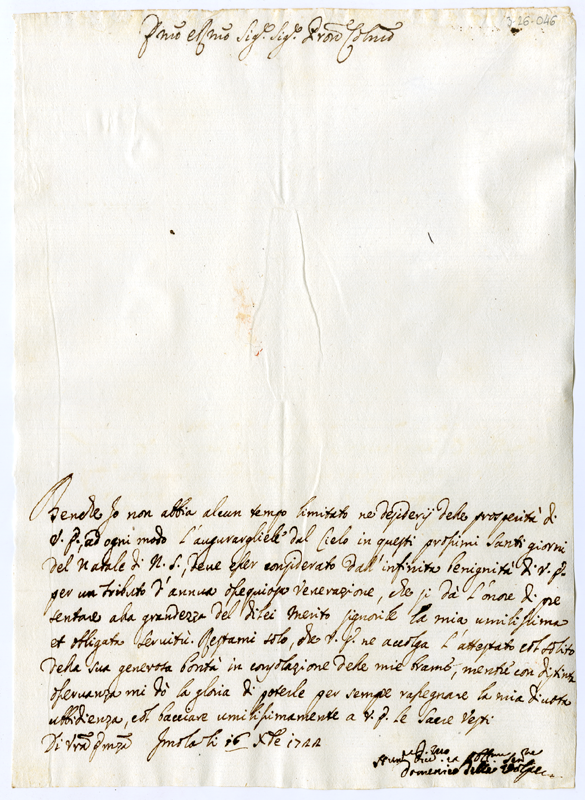 3-26-046
Emo e Rmo Sigr. Sigr. Pron Colmo
Benche Io non abbia alcun tempo limitato ne desiderij delle prosperità di
V. E., ad ogni modo l'augurargliele dal Cielo in questi prossimi Santi giorni
del Natale di N. S., deve esser considerato dall'infinita benignità di V. E.
per un tributo d'annua ossequiosa venerazione, che si dà l'onore di pre
sentare alla grandezza del di lei merito signorile la mia umilissima
et obligata servitù. Restami solo, che V. E. ne accolga l'attestato col solito
della sua generosa bontà in consolazione delle mie brame, mentre con distinta
osservanza mi dò la gloria di poterle per sempre rassegnare la mia divota
ubbidienza, col bacciare umilissimamente a V. E. le Sacre Vesti
Di Vra Emza Imola li 16 Xbre 1744
Domenico della Volpe